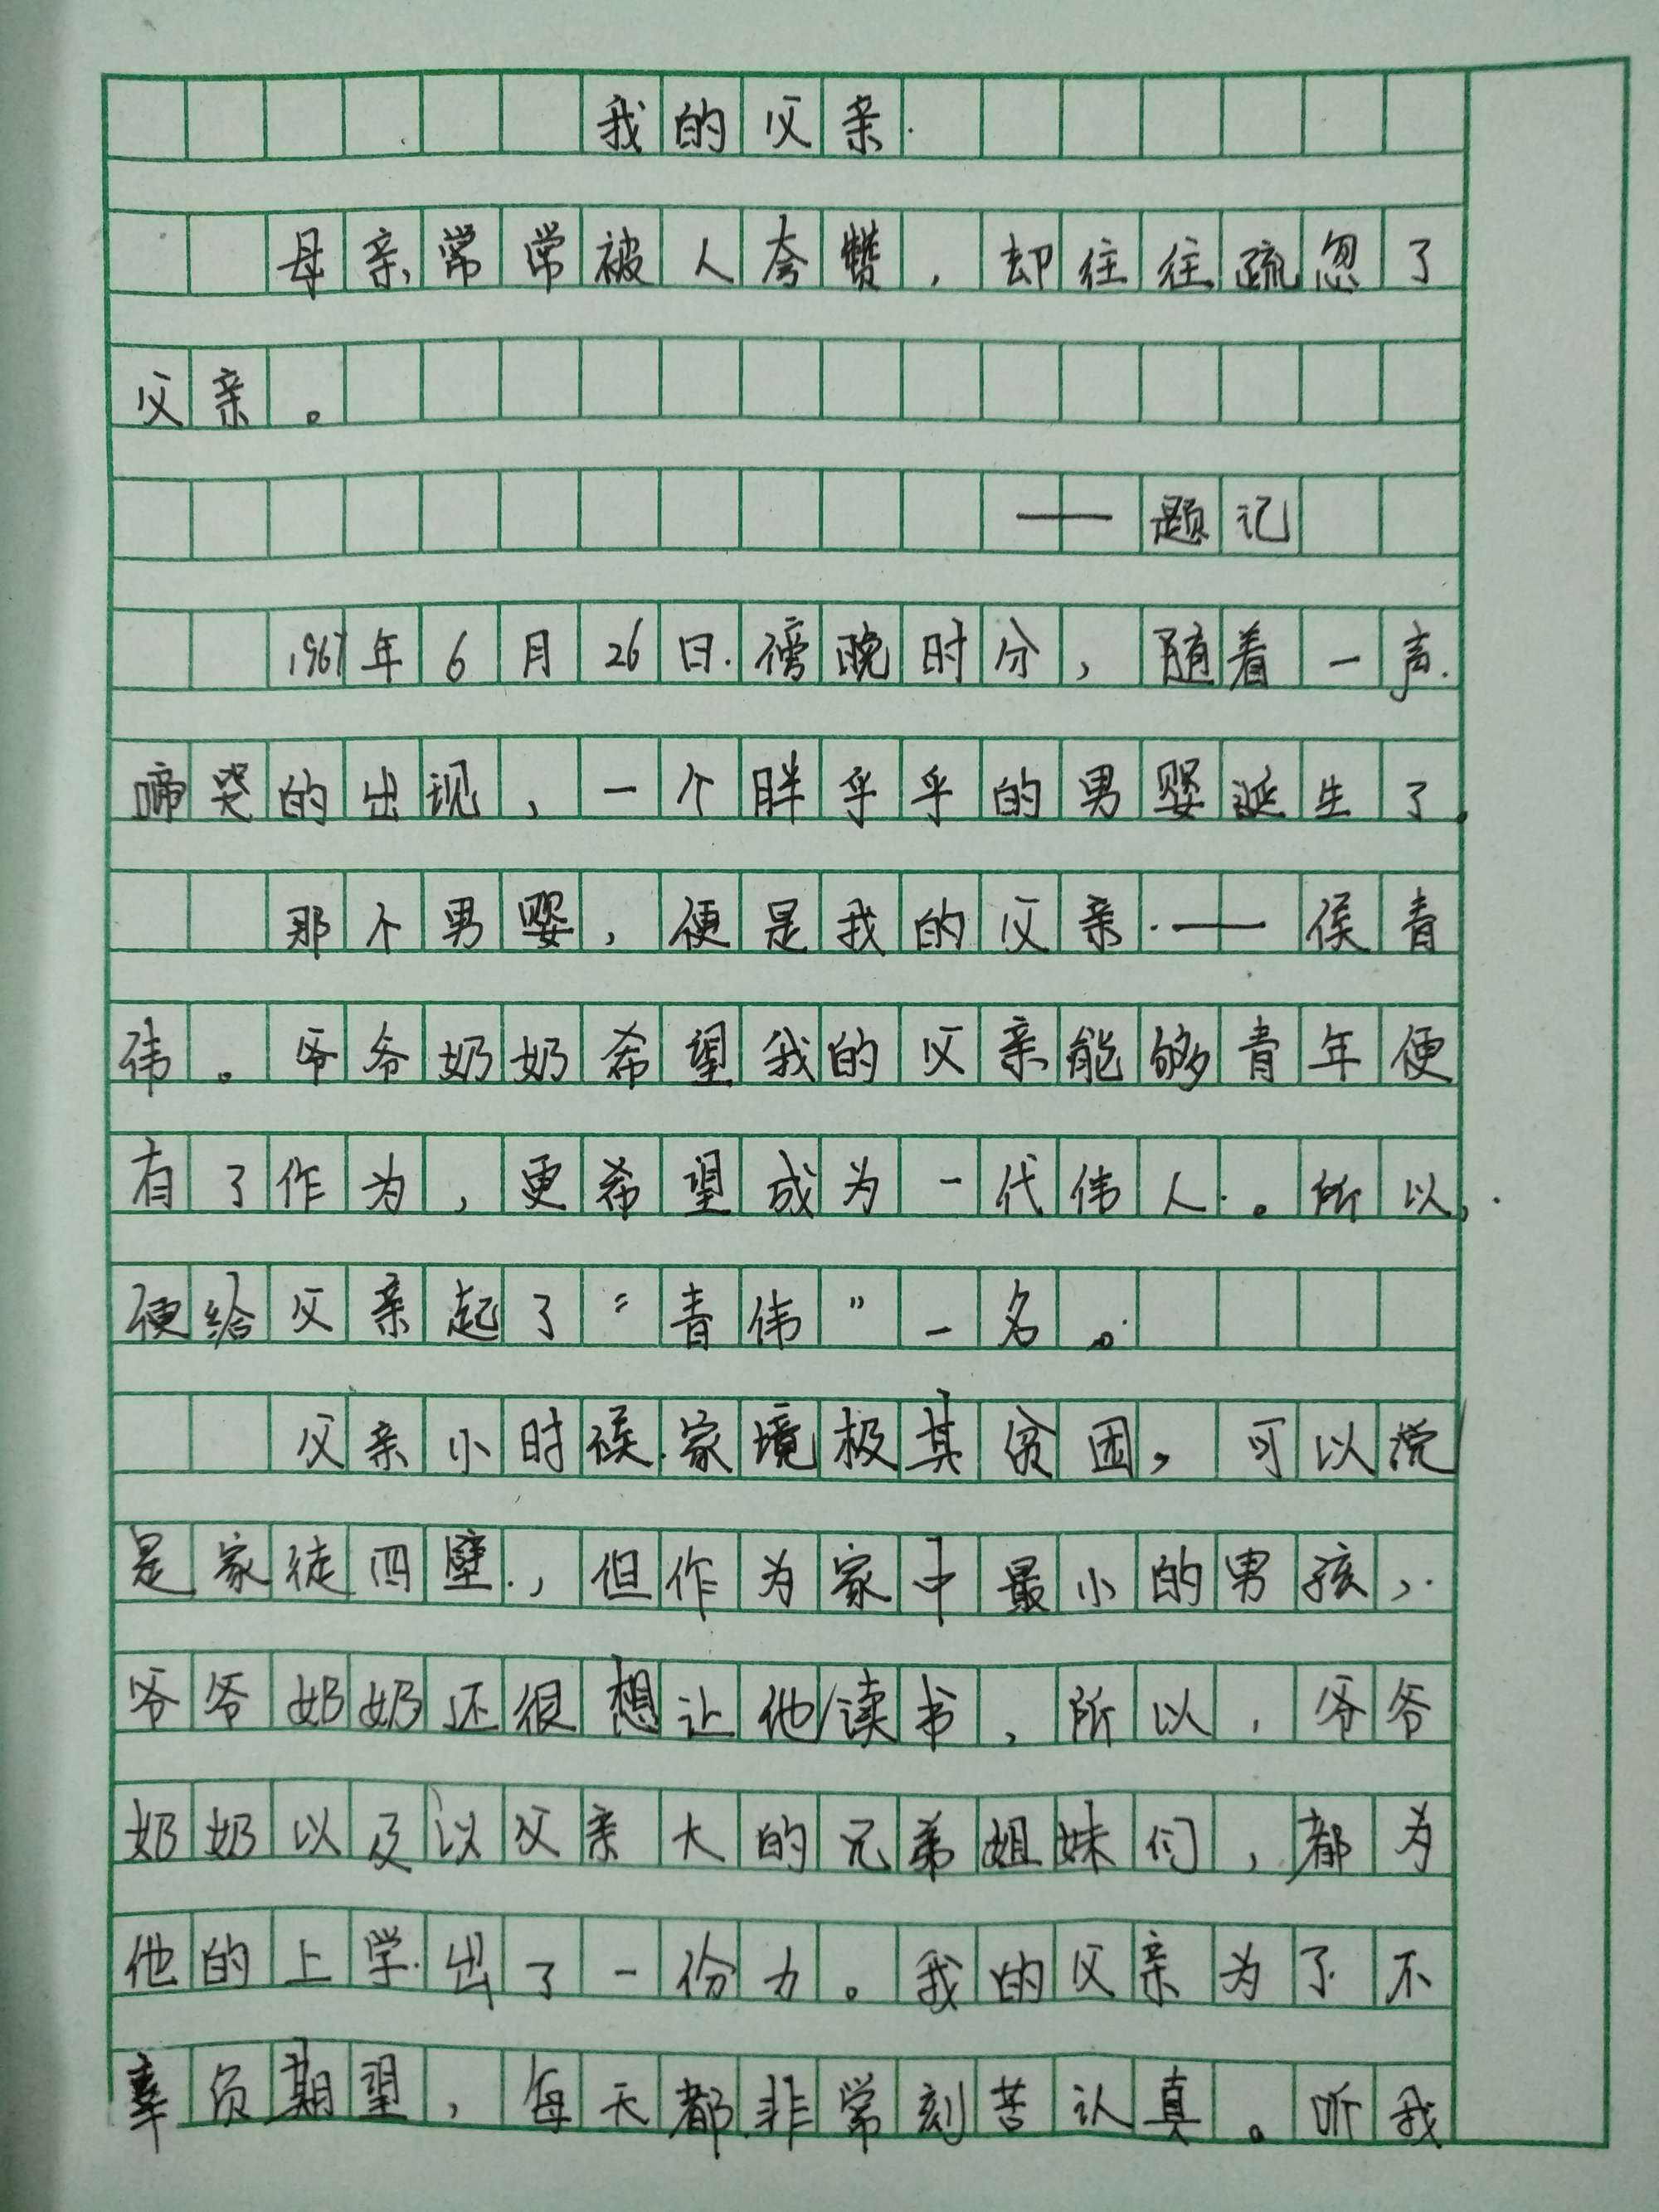 我的父亲
母亲常常被人夸赞，却往往疏忽了
父亲。
——题记
1967年6月26日傍晚时分，随着一声
啼哭的出现，一个胖乎乎的男婴诞生了。
那个男婴，便是我的父亲——侯青
伟。爷爷奶奶希望我的父亲能够青年便
有了作为，更希望成为一代伟人。所以，
便给父亲起了“青伟”一名。
父亲小时候家境极其贫困，可以说
是家徒四壁，但作为家中最小的男孩，
爷爷奶奶还很想让他读书，所以，爷爷
奶奶以及以父亲大的兄弟姐妹们，都为
他的上学出了一份力。我的父亲为了不
辜负期望，每天都非常刻苦认真。听我